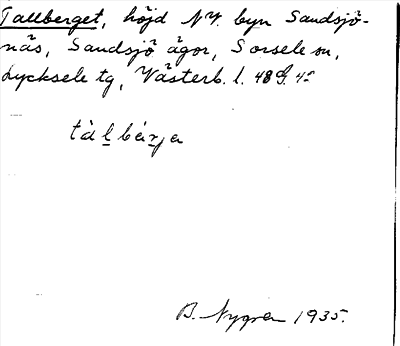 Tallberget, höjd NV. byn Sandsjö-
näs, Sandsjö ägor, Sorsele sn,
Lycksele tg, Västerb. l. 48 G. 4:
tàl̲bár̲ja
B. Nygren 1935.